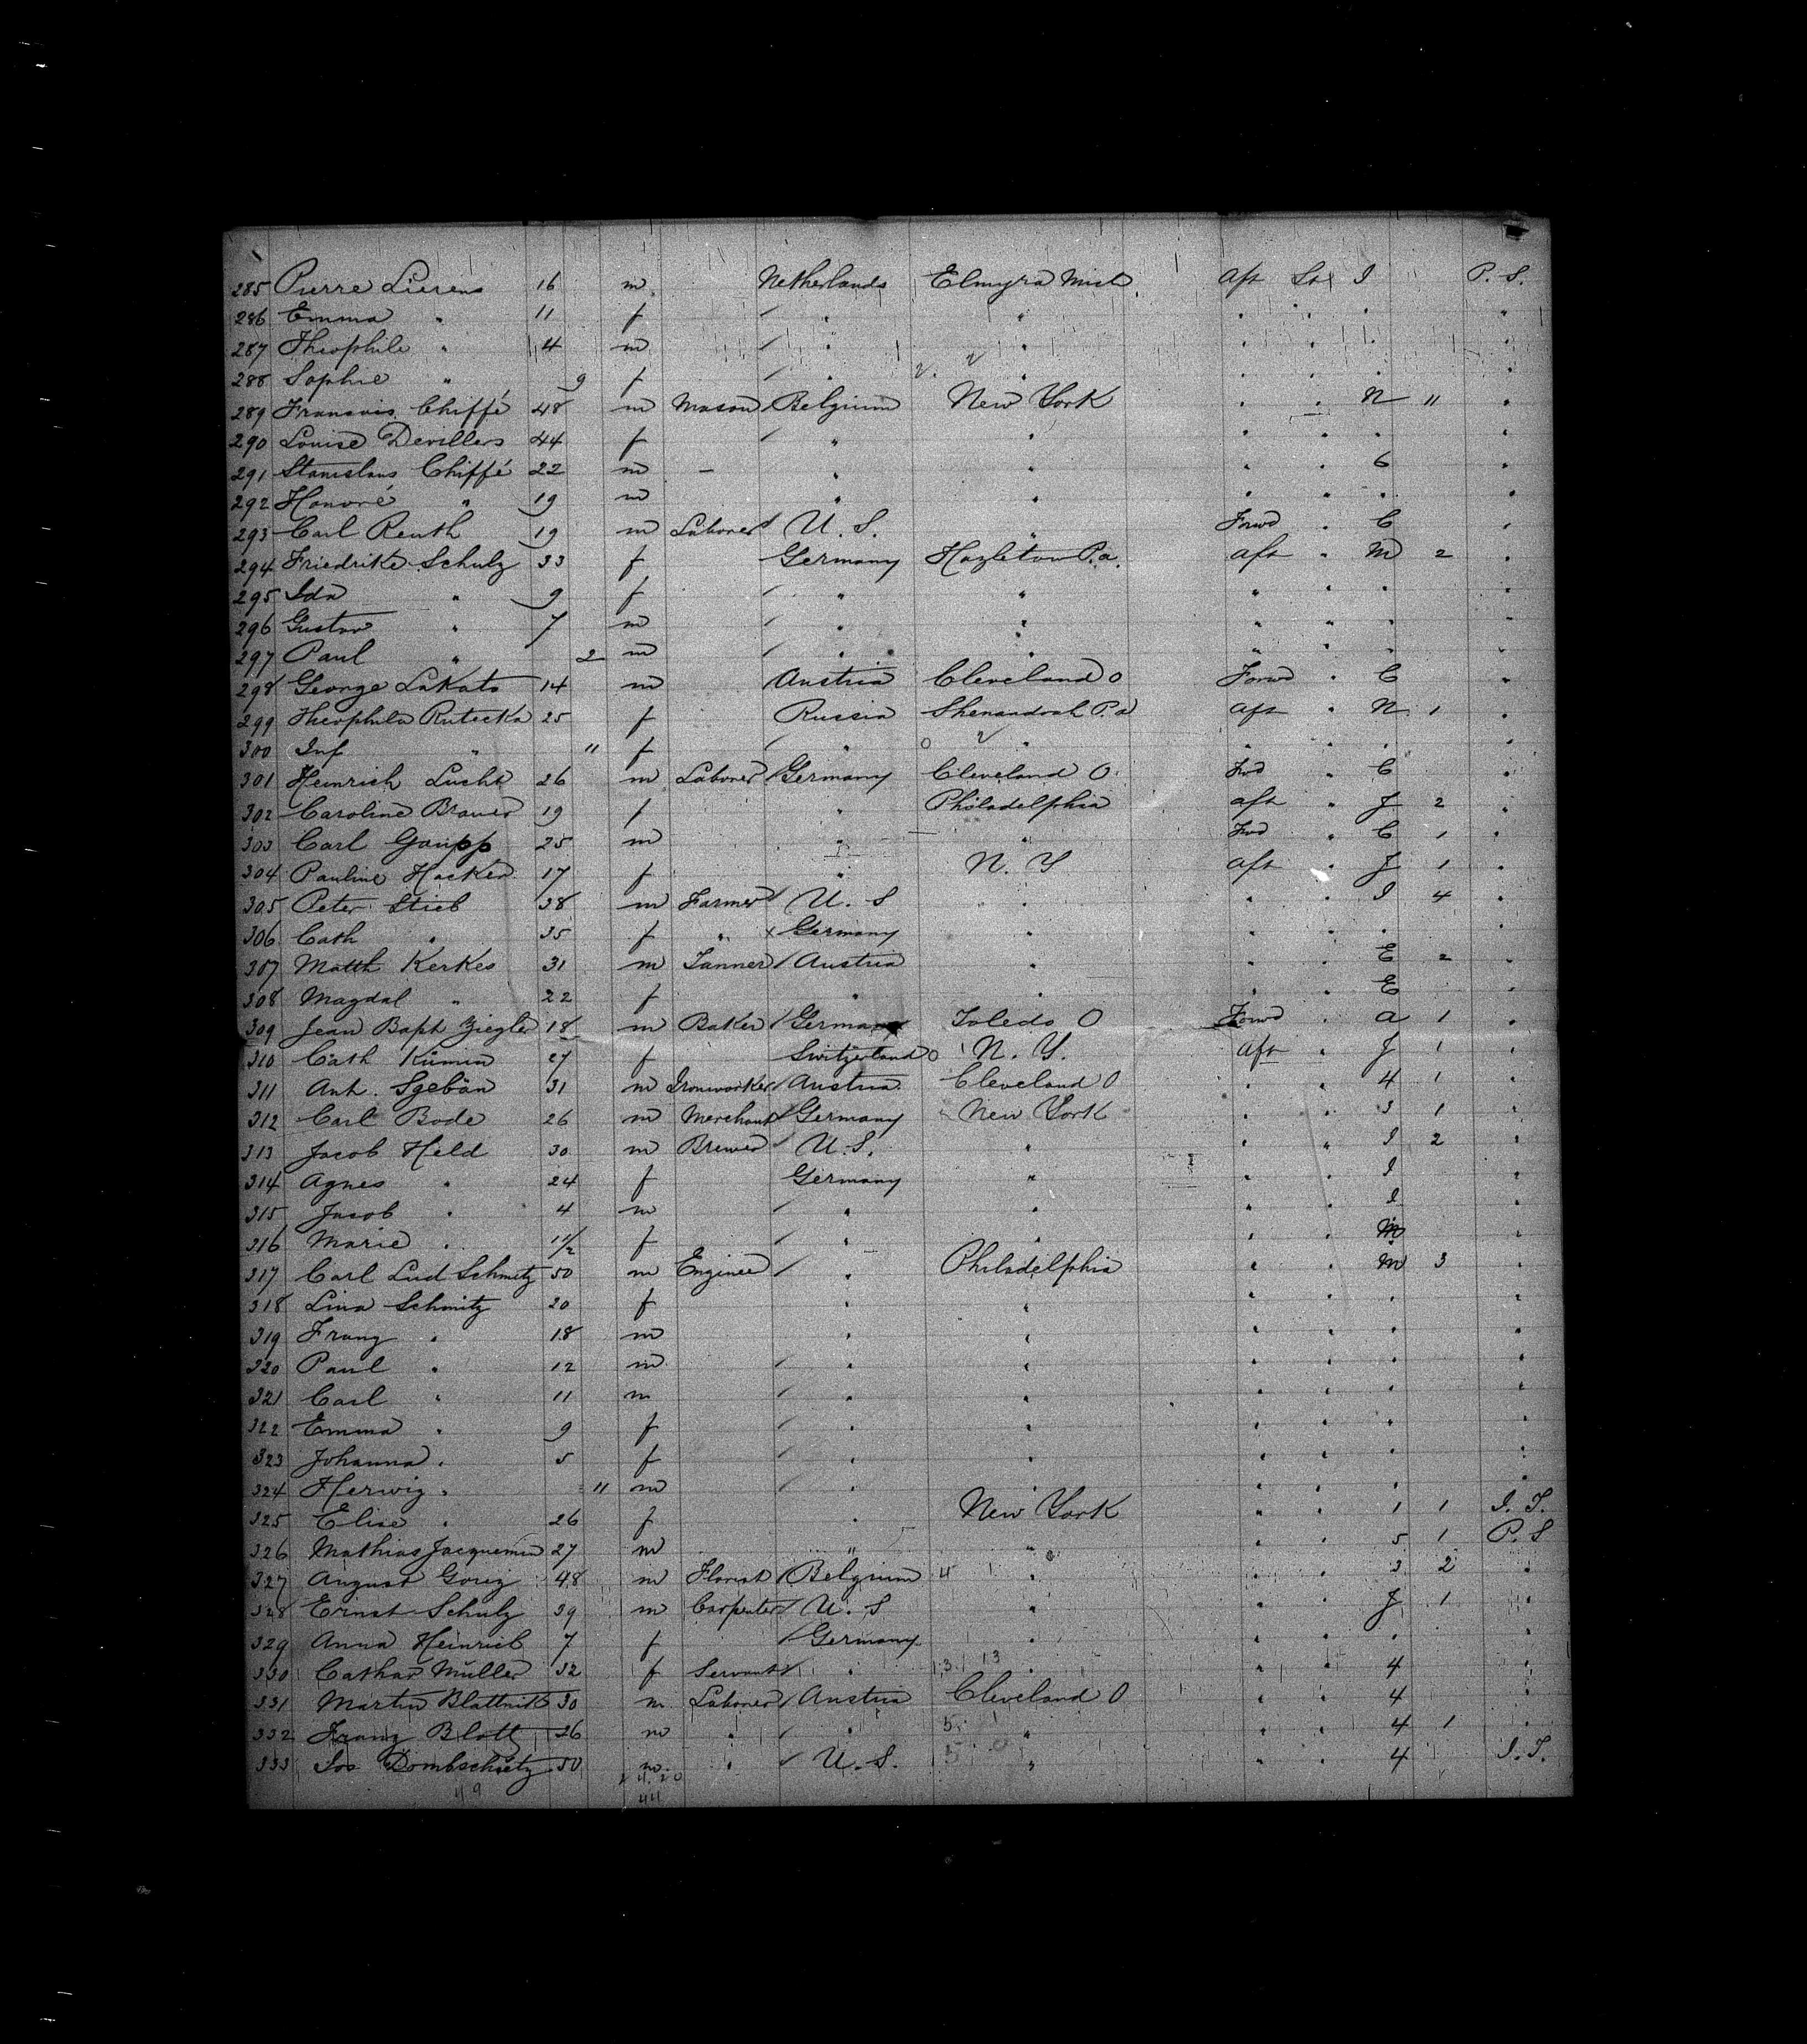 285 Pierre Lierens 16 m Netherlands Elmyra Mich. Aft St I P. S.
286 Emma " 11 f " "
287 Theophile " 4 m " "
288 Sophie " 9 f "
289 Francois Chiffé 48 m Mason Belgium New York " " N 11 "
290 Louise Devillers 44 f " " " " " "
291 Stanislaus Chiffé 22 m - " " " " 6 "
292 Honoré " 19 m " " " " " "
293 Carl Reuth 19 m Laborer U. S. " Forwd " C "
294 Friedrike Schulz 33 f Germany Hazleton Pa. Aft " M 2 "
295 Ida " 9 f " " " " " "
296 Gustav " 7 m " " " " " "
297 Paul " 2 m " " " " " "
298 George Lakats 14 m Austria Cleveland O Forwd " C "
299 Theophila Rutecka 25 f Russia Shenandoah Pa Aft " N 1 "
300 Inf " 11 f " " " " " "
301 Heinrich Lucht 26 m Laborer Germany Cleveland O. Fwd " C "
302 Caroline Brauer 19 f " Philadelphia Aft " J 2 "
303 Carl Gaupp 25 m " " Fwd " C 1 "
304 Pauline Hacker 17 f " N. Y Aft " J 1 "
305 Peter Stieb 38 m Farmer U. S " " " I 4 "
306 Cath " 35 f " Germany " " " " "
307 Matth Kerkes 31 m Tanner Austria " " " E 2 "
308 Magdal " 22 f " " " " E
309 Jean Bapt Ziegler 18 m Baker Germany Toledo O Forwd " A 1 "
310 Cath Kümin 27 f Switzerland N. Y. Aft " J 1 "
311 Ant. Szebän 31 m Ironworker Austria Cleveland O " " 4 1 "
312 Carl Bode 26 m Merchant Germany New York " " 3 1 "
313 Jacob Held 30 m Brewer U. S. " " " I 2 "
314 Agnes " 24 f Germany " " " I "
315 Jacob " 4 m " " " " I "
316 Marie " 11/2 f " " " " M "
317 Carl Lud Schmitz 50 m Engineer " Philadelphia " " M 3 "
318 Lina Schmitz 20 f " " " " " "
319 Franz " 18 m " " " " " "
320 Paul " 12 m " " " " " "
321 Carl " 11 m " " " " " "
322 Emma " 9 f " " " " " "
323 Johanna " 5 f " " " " " "
324 Herwig " 11 m " " " " " "
325 Elise " 26 f " New York " " 1 1 I. T.
326 Mathias Jacquemin 27 m " " " " 5 1 P. S
327 August Goriz 48 m Florist Belgium " " " 3 2 "
328 Ernst Schulz 39 m Carpenter U. S " " " J 1 "
329 Anna Heinrich 7 f Germany " " " " "
330 Cathar Müller 32 f Servant " 13 13 " " " 4 "
331 Martin Blattnik 30 m Laborer Austria Cleveland O " " 4 "
332 Franz Blatt 26 m " " " " " 4 1 "
333 Jos Dombschitz 50 m " U. S. " " " 4 I. T.
49
44